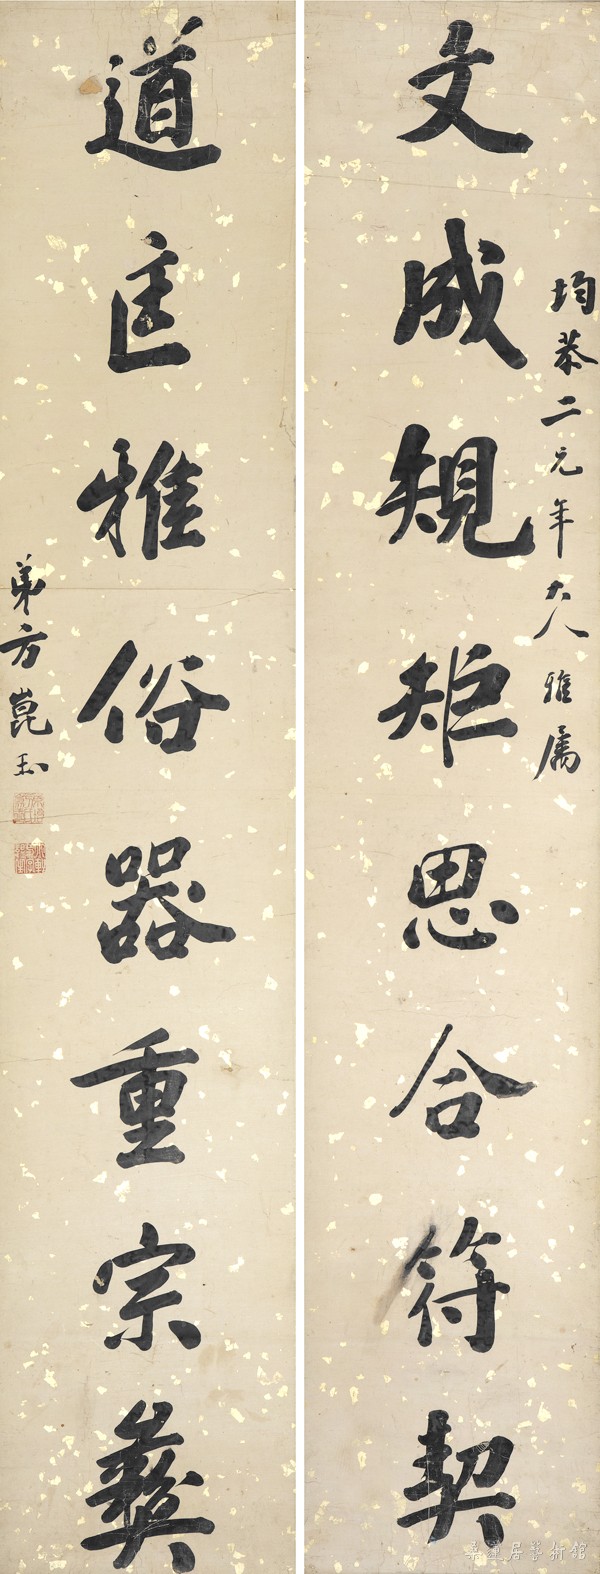 均恭二元年大人雅属
文成規矩思合符契
道匡雅俗器重宗彝
弟方崑玉
桑蓮居藝術館